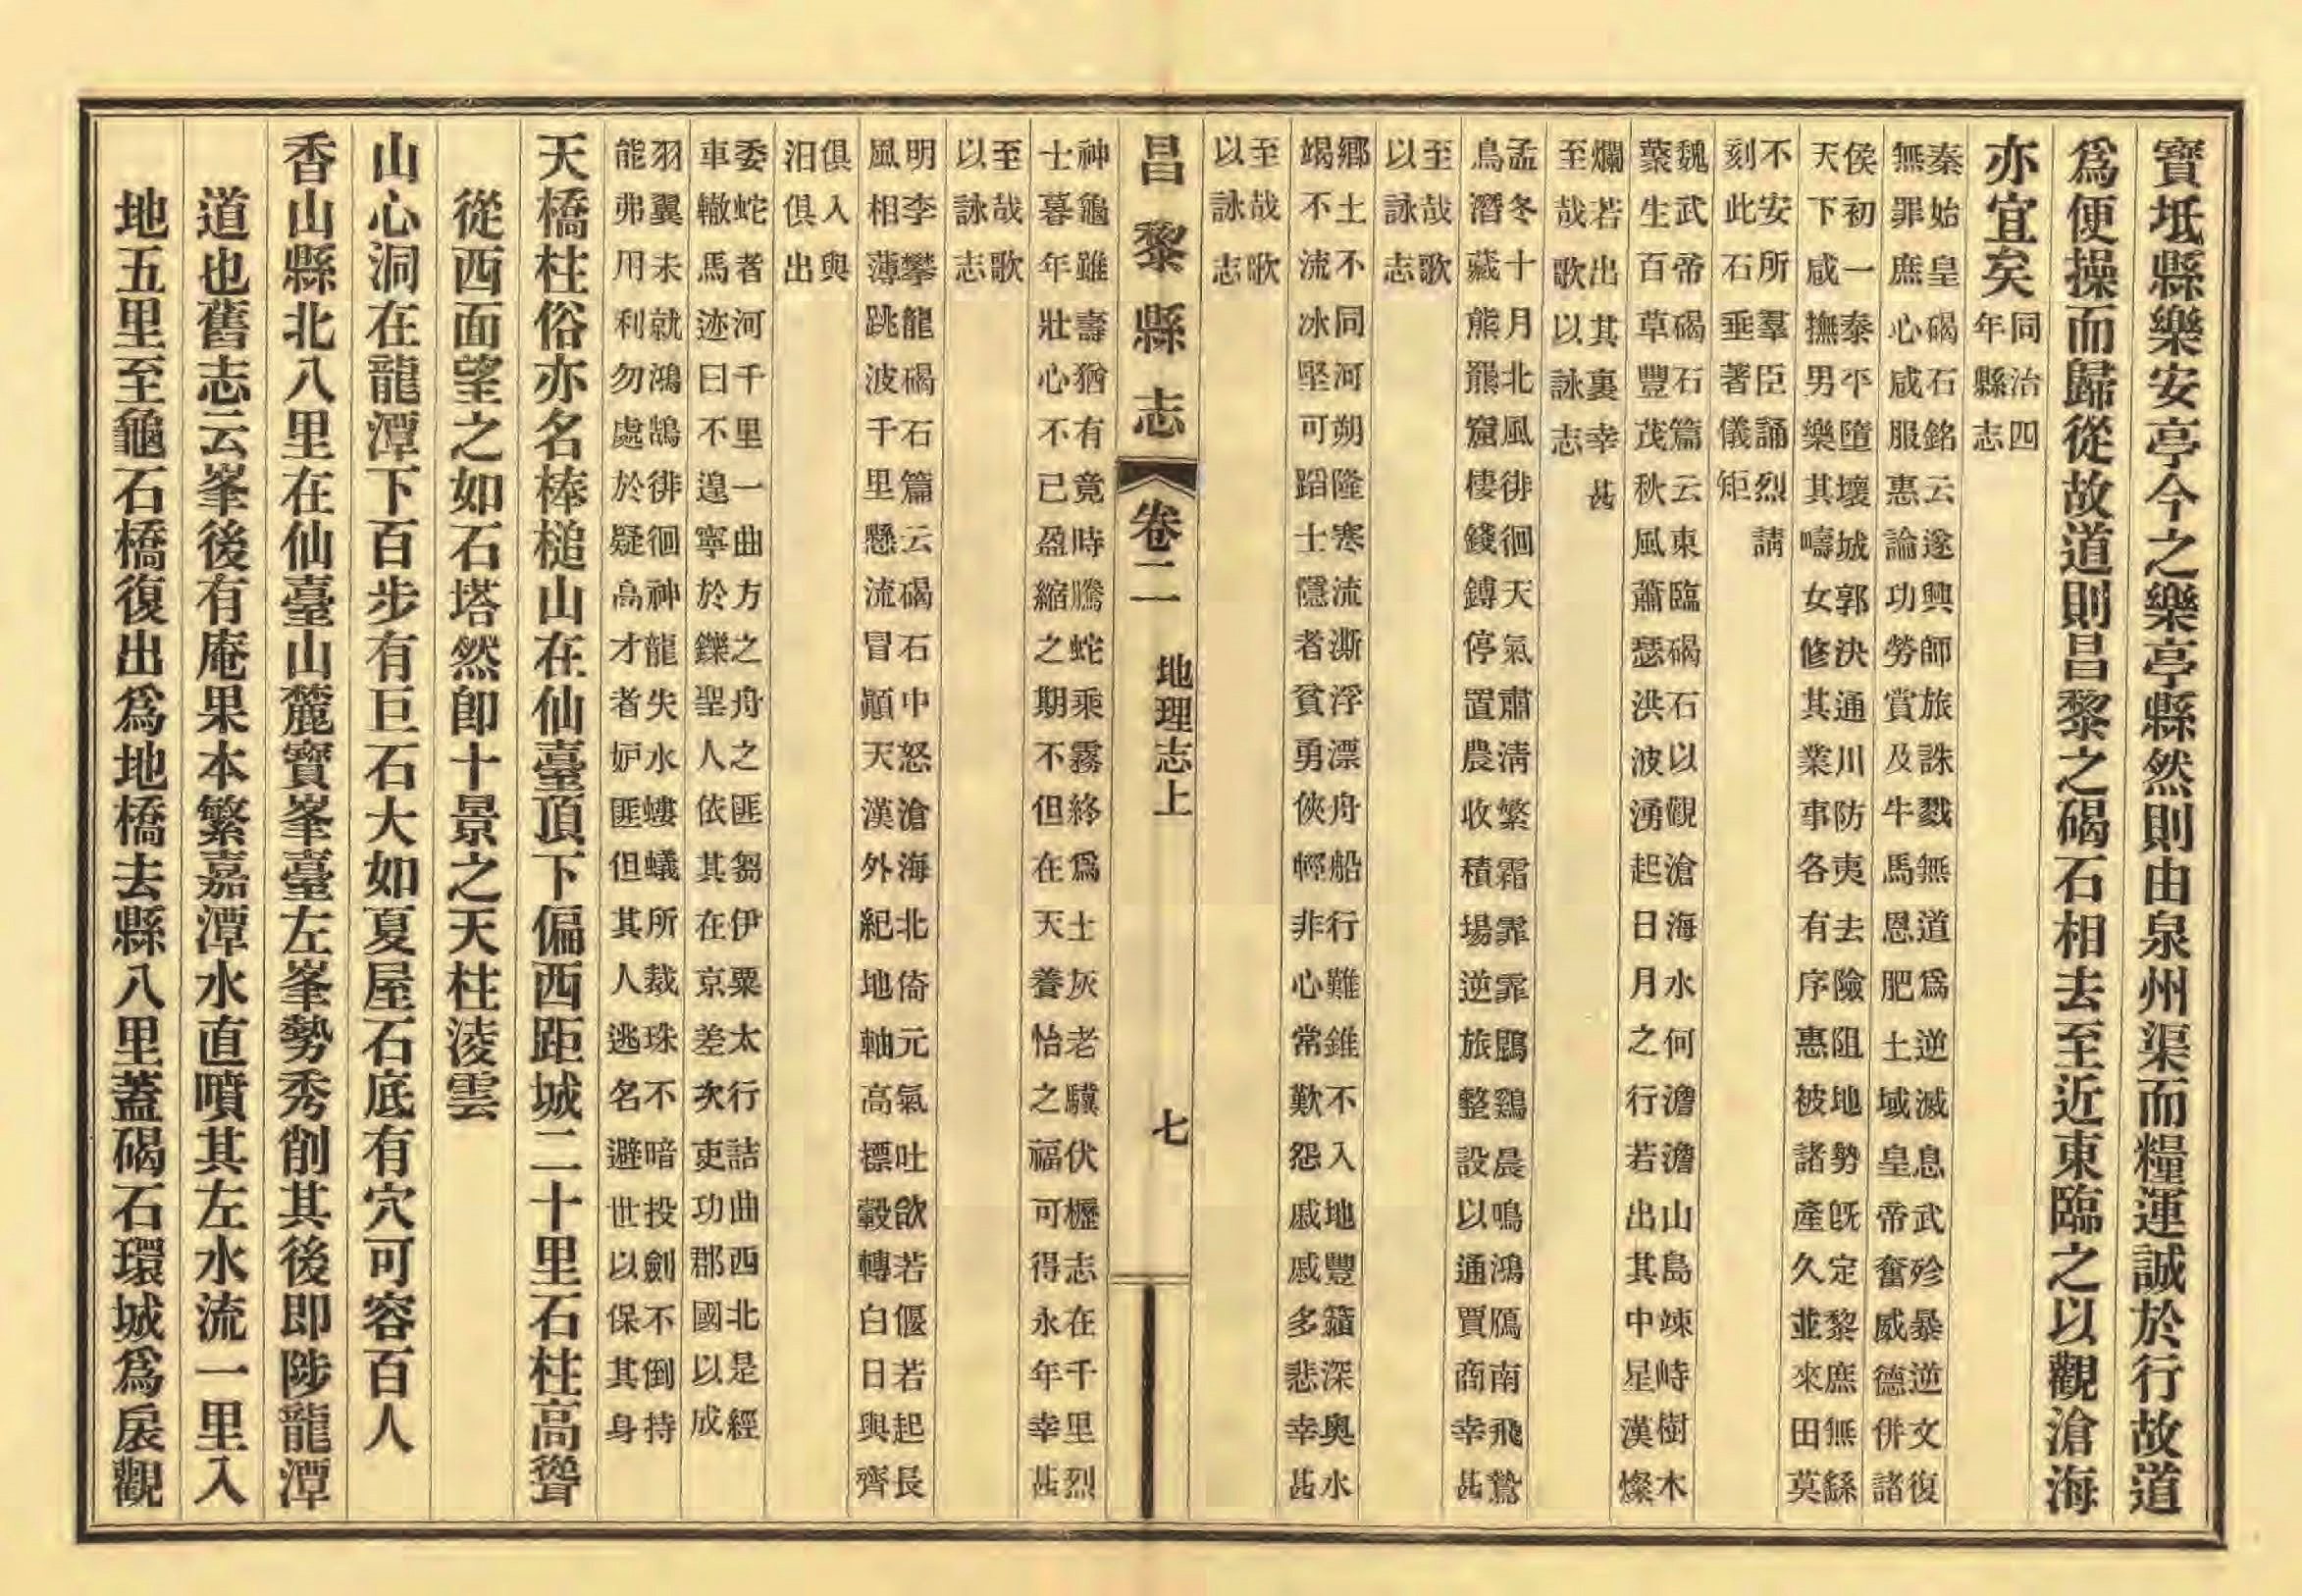 寶坻縣樂安亭今之樂亭縣然則由泉州渠而糧運誠於行故道
爲便操而歸從故道則昌黎之碣石相去至近東臨之以觀滄海
亦宜矣同治四
年縣志
秦始皇碣石銘云遂興師旅誅戮無道爲逆滅息武殄暴逆文復
無罪庶心咸服惠論功勞賞及牛馬恩肥土域皇帝奮威德併諸
侯初一泰平墮壞城郭決通川防夷去險阻地勢旣定黎庶無繇
天下咸撫男樂其疇女修其業事各有序惠被諸產久並來田莫
不安所羣臣誦烈請
刻此石垂著儀矩
魏武帝碣石篇云東臨碣石以觀滄海水何澹澹山島竦峙樹木
藂生百草豐茂秋風蕭瑟洪波湧起日月之行若出其中星漢燦
爛若出其裏幸甚
至哉歌以詠志
孟冬十月北風徘徊天氣肅淸繁霜霏霏鵾鷄晨鳴鴻鴈南飛鷙
鳥潛藏熊羆窟棲錢鎛停置農收積場逆旅整設以通賈商幸甚
至哉歌
以詠志
鄉土不同河朔隆寒流澌浮漂舟船行難錐不入地豐籟深奧水
竭不流冰堅可蹈士隱者貧勇俠輕非心常歎怨戚戚多悲幸甚
至哉歌
以詠志
昌黎縣志 卷二 地理志上 七
神龜雖壽猶有竟時騰蛇乘霧終爲土灰老驥伏櫪志在千里烈
士暮年壯心不已盈縮之期不但在天養怡之福可得永年幸甚
至哉歌
以詠志
明李攀龍碣石篇云碣石中怒滄海北倚元氣吐歛若偃若起長
風相薄跳波千里懸流冒顚天漢外紀地軸高標轂轉白日與齊
俱入與
汨俱出
委蛇者河千里一曲方之舟之匪芻伊粟太行詰曲西北是經
車轍馬迹曰不遑寧於鑠聖人依其在京差次吏功郡國以成
羽翼未就鴻鵠徘徊神龍失水螻蟻所裁珠不暗投劍不倒持
能弗用利勿處於疑高才者妒匪但其人逃名避世以保其身
天橋柱俗亦名棒槌山在仙臺頂下偏西距城二十里石柱高聳
從西面望之如石塔然卽十景之天柱淩雲
山心洞在龍潭下百步有巨石大如夏屋石底有穴可容百人
香山縣北八里在仙臺山麓寶峯臺左峯勢秀削其後卽陟龍潭
道也舊志云峯後有庵果本繁嘉潭水直噴其左水流一里入
地五里至龜石橋復出爲地橋去縣八里蓋碣石環城爲扆觀